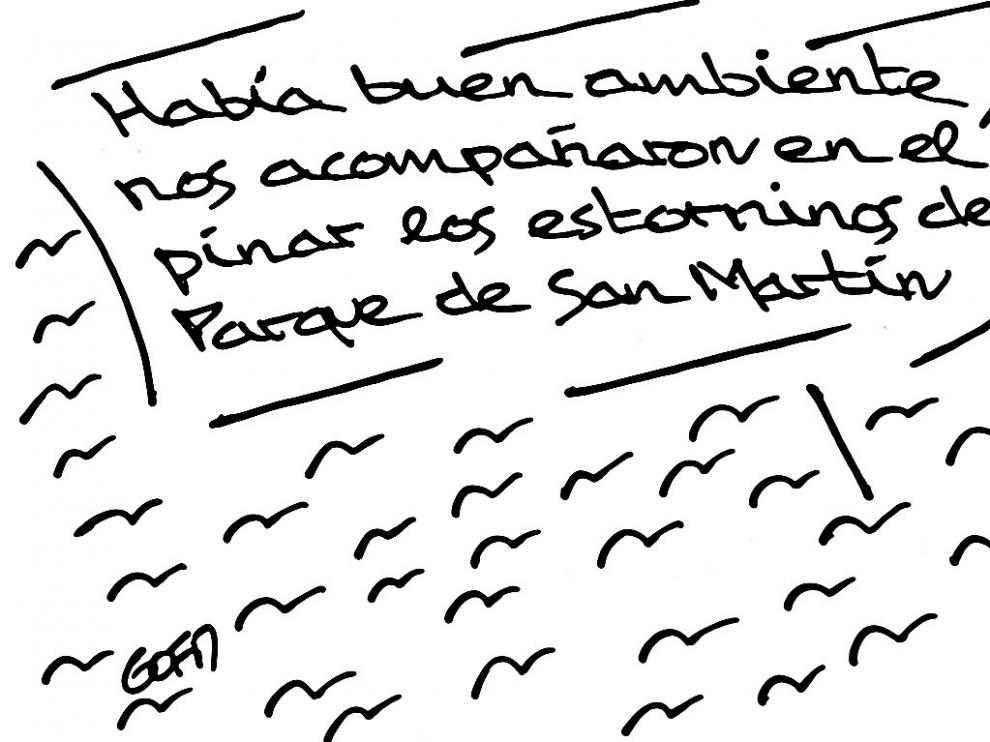 Había buen ambiente,
nos acompañaron en el
pinar los estorninos de
Parque de San Martín
GOFIÓ